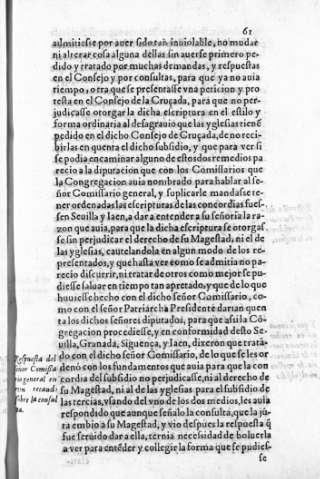 61
admitiesse por auer sido tan inuiolable, no mudar
ni alterar cosa alguna dellas sin auerse primero pe-
dido y tratado por muchas demandas, y respuestas
en el Consejo y por consultas, para que ya no auia
tiempo, o tra que se presentasse vna peticion y pro
testa en el Consejo de la Cruçada, para que no per-
judicasse otorgar la dicha escriptura en el estilo y
forma ordinaria al desagrauio que las yglesias tienē
pedido en el dicho Consejo de Cruçada, de no reci-
birlas en quenta el dicho subsidio, y que para ver si
se podia encaminar alguno de estos dos remedios pa
recio a la diputacion que con los Comissarios que
la Congregacion auia nombrado para hablar al se-
ñor Comissario general, y suplicarle mandasse te-
ner ordenadas las escripturas de las concordias fues-
sen Seuilla y Iaen, a dar a entender a su señoria la ra-
zon que auia, para que la dicha escriptura se otorgas
se sin perjudicar el derecho de su Magestad, ni el de
las yglesias, cautelandola en algun modo de los re-
presentados, y que hasta ver como se admitia no pa-
recio discurrir, ni tratar de otros como mejor se pu-
diesse saluar en tiempo tan apretado, y que de lo que
huuiesse hecho con el dicho señor Comissario, co-
mo con el señor Patriarcha Presidente darian quen
ta los dichos señores diputados, para que assi la Cō-
gregacion procediesse, y en conformidad desto Se-
uilla, Granada, Siguença, y Iaen, dixeron que trata-
do con el dicho señor Comissario, de lo que se les or
denó con los fundamentos que auia para que la con
cordia del subsidio no perjudicasse, ni al derecho de
su Magestad, ni al de las yglesias para el subsidio de
las tercias, vsando del vno de los dos medios, les auia
respondido que aunque señalo la consulta, que la jū-
ta embio a su Magestad, y vio despues la respuesta q̄
fue seruido dar a ella, ternia necessidad de boluerla
a ver para entēder y collegir la forma que se pudies-
se
Respuesta del
señor Comissa
rio general en